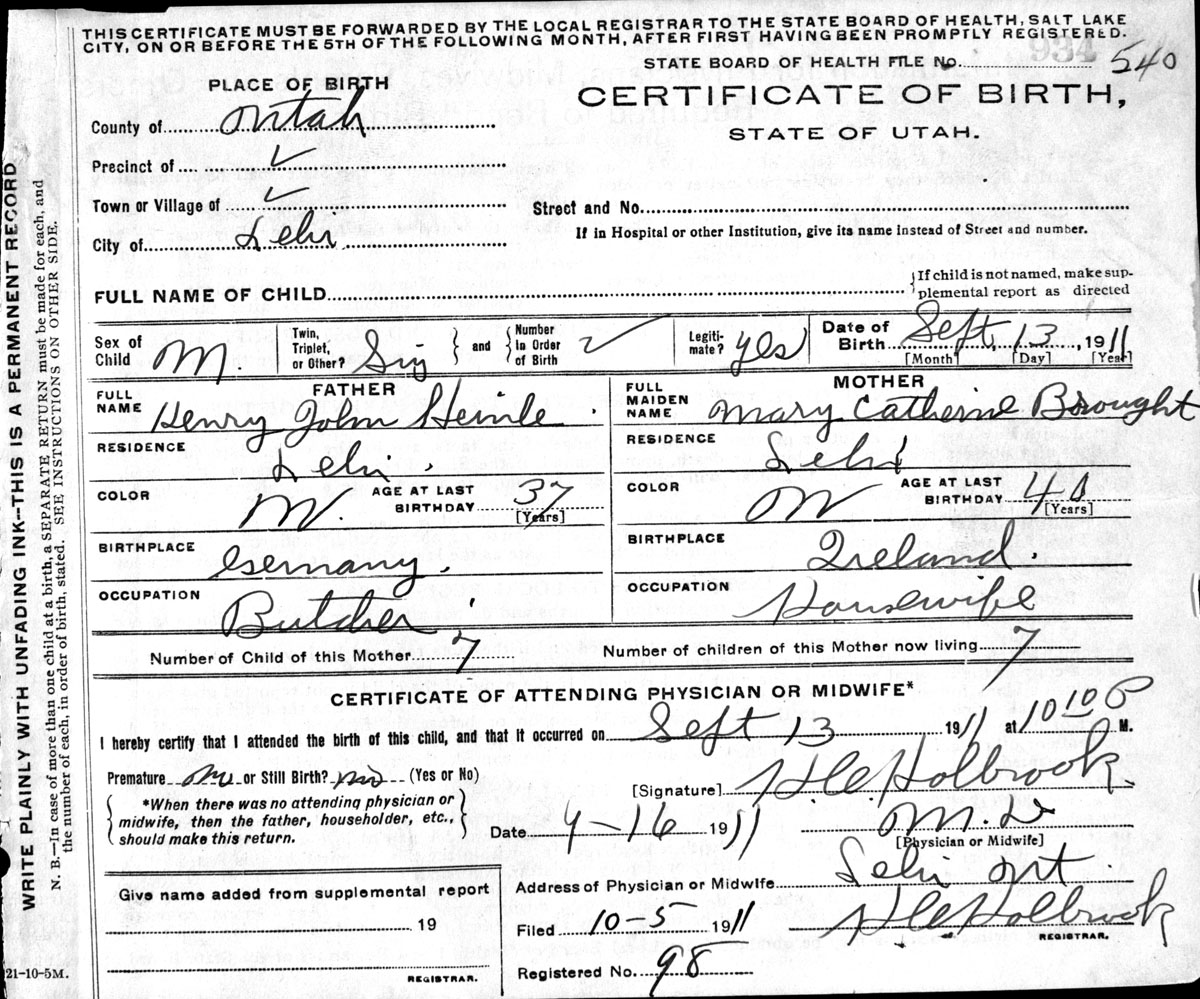 THIS CERTIFICATE MUST BE FORWARDED BY THE LOCAL REGISTRAR TO THE STATE BOARD OF HEALTH, SALT LAKE
CITY, ON OR BEFORE THE 5TH OF THE FOLLOWING MONTH, AFTER FIRST HAVING BEEN PROMPTLY REGISTERED.
STATE BOARD OF HEALTH FILE No. 934 540
PLACE OF BIRTH
CERTIFICATE OF BIRTH,
STATE OF UTAH.
County of Utah
Precinct of ✓
Town or Village of ✓
City of Lehi
Street and No.
If in Hospital or other Institution, give its name instead of Street and number.
FULL NAME OF CHILD
If child is not named, make sup-
plemental report as directed
Sex of Child M.
Twin, Triplet, or Other? Sing
and
Number In Order of Birth ✓
Legiti-mate? yes
Date of Birth Sept, 13, 1911
[Month] [Day] [Year]
FATHER
FULL NAME Henry John Heinle
RESIDENCE Lehi.
COLOR W. AGE AT LAST BIRTHDAY 37
[Years]
BIRTHPLACE Germany.
OCCUPATION Butcher
MOTHER
FULL MAIDEN NAME Mary Catherine Brought
RESIDENCE Lehi
COLOR W AGE AT LAST BIRTHDAY 40
[Years]
BIRTHPLACE Ireland.
OCCUPATION Housewife
Number of Child of this Mother 7
Number of children of this Mother now living 7
CERTIFICATE OF ATTENDING PHYSICIAN OR MIDWIFE*
I hereby certify that I attended the birth of this child, and that it occurred on Sept 13 1911 at 10 10 P M.
Premature no or Still Birth? no (Yes or No)
*When there was no attending physician or
midwife, then the father, householder, etc.,
should make this return.
[Signature] H.C. Holbrook
Date 9-16 1911
M.D
[Physician or Midwife]
Address of Physician or Midwife Lehi Ut
Filed 10-5 1911
H C Holbrook
REGISTRAR.
Registered No. 98
Give name added from supplemental report
19
REGISTRAR.
WRITE PLAINLY WITH UNFADING INK—THIS IS A PERMANENT RECORD
N. B.—In case of more than one child at a birth, a SEPARATE RETURN must be made for each, and
the number of each, in order of birth, stated. SEE INSTRUCTIONS ON OTHER SIDE.
21-10-5M.